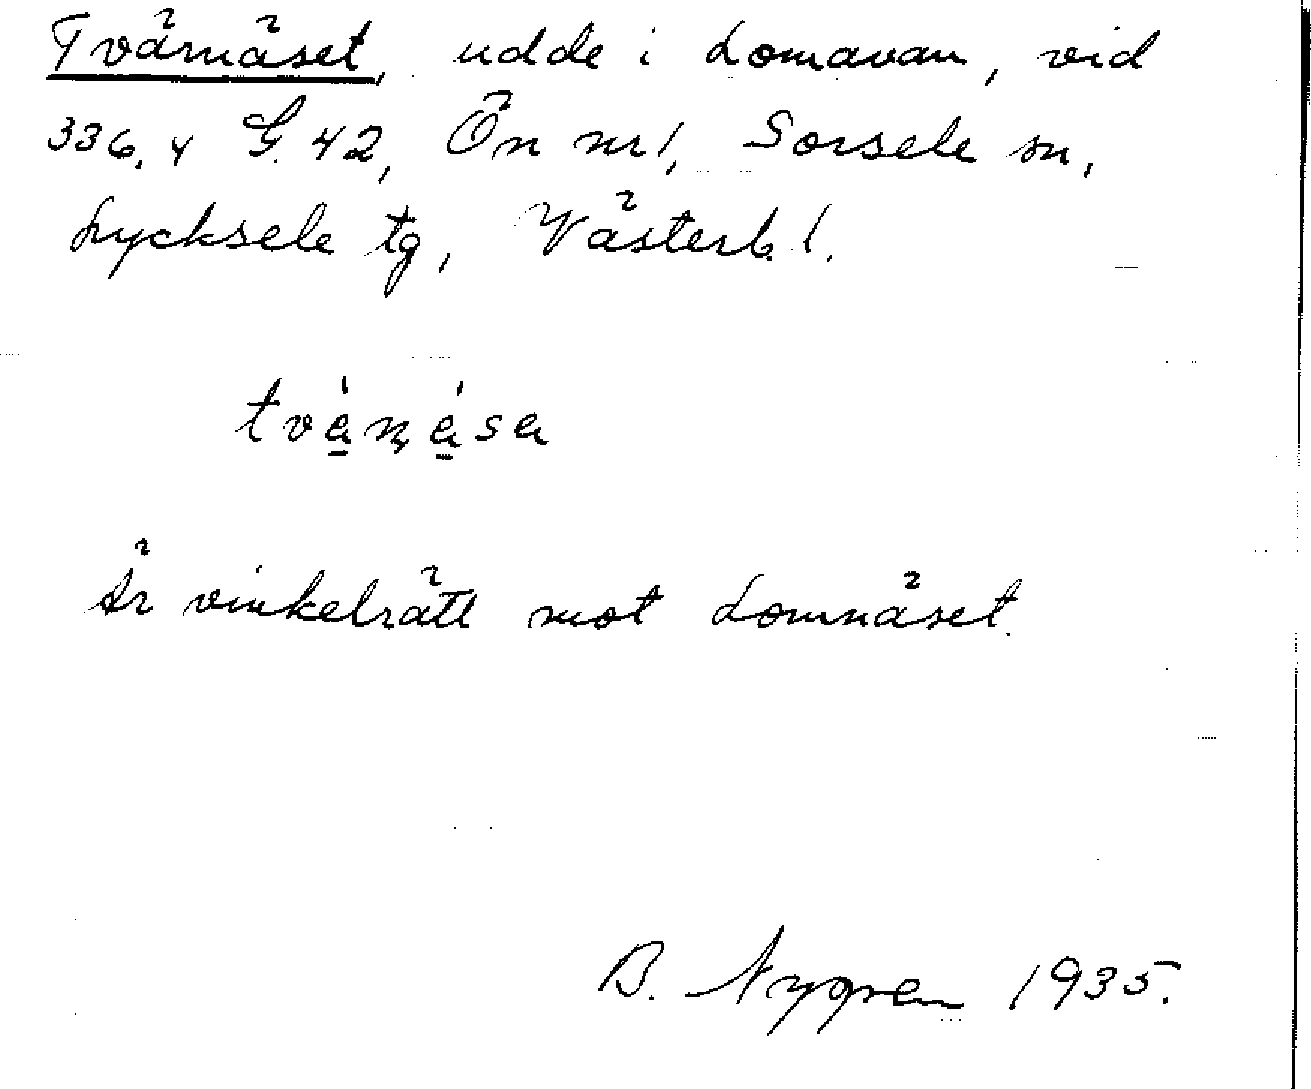 Tvärnäset, udde i Lomavan, vid
336,4 G. 42, Ön nr 1, Sorsele sn,
Lycksele tg, Västerb. l.
tvánása
Är vinkelrätt mot Lomnäset.
B. Nygren 1935.